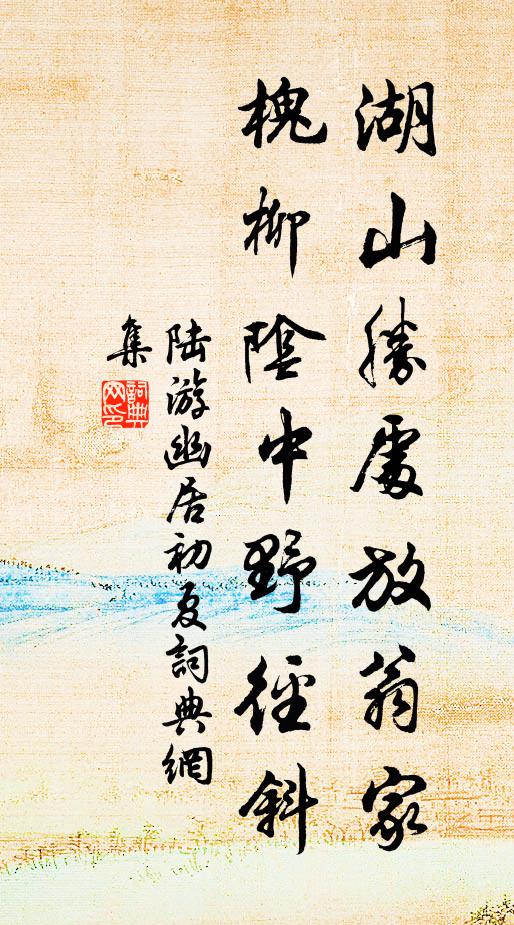 湖山勝處放翁家
槐柳陰中野徑斜
陸游幽居初夏詞典網
集
詞典
网印